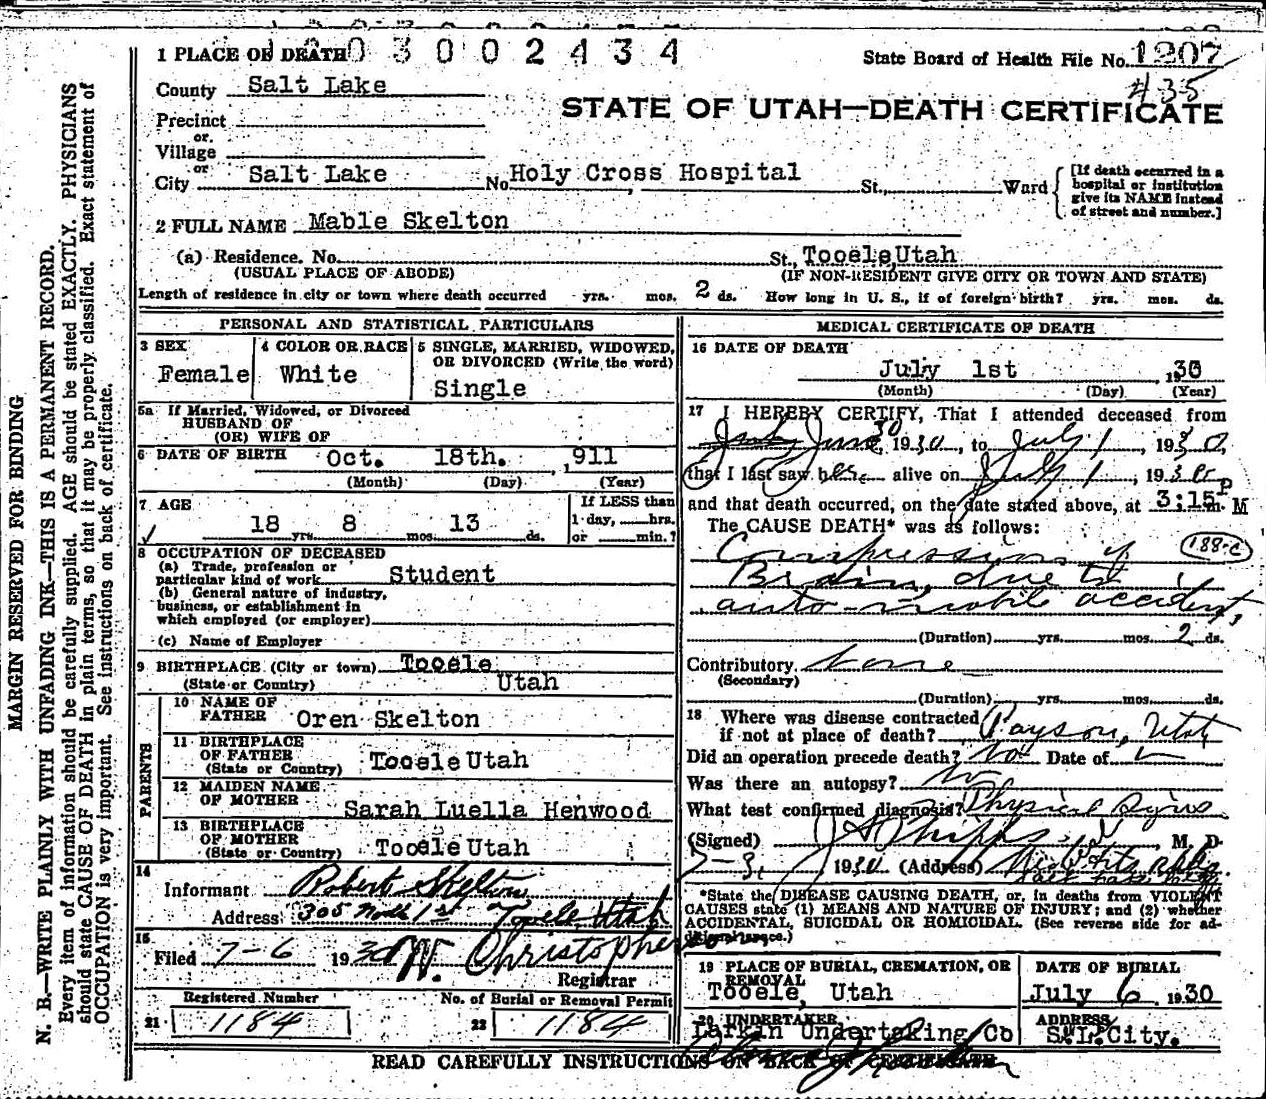 1 PLACE OF DEATH
3 0 0 2 4 3 4
State Board of Health File No. 1207
435
County Salt Lake
STATE OF UTAH—DEATH CERTIFICATE
Precinct
or
Village
or
City Salt Lake No Holy Cross Hospital St., Ward
[If death occurred in a
hospital or institution
give its NAME instead
of street and number.]
2 FULL NAME Mable Skelton
(a) Residence. No. St., Tooele, Utah
(USUAL PLACE OF ABODE) (IF NON-RESIDENT GIVE CITY OR TOWN AND STATE)
Length of residence in city or town where death occurred yrs. mos. 2 ds. How long in U. S., if of foreign birth? yrs. mos. ds.
PERSONAL AND STATISTICAL PARTICULARS
3 SEX
Female
4 COLOR OR RACE
White
5 SINGLE, MARRIED, WIDOWED,
OR DIVORCED (Write the word)
Single
5a If Married, Widowed, or Divorced
HUSBAND OF
(OR) WIFE OF
6 DATE OF BIRTH Oct. 18th. , 911
(Month) (Day) (Year)
7 AGE
18 yrs. 8 mos. 13 ds.
If LESS than
1 day, hrs.
or min.?
8 OCCUPATION OF DECEASED
(a) Trade, profession or
particular kind of work Student
(b) General nature of industry,
business, or establishment in
which employed (or employer)
(c) Name of Employer
9 BIRTHPLACE (City or town) Tooele
(State or Country) Utah
PARENTS
10 NAME OF
FATHER Oren Skelton
11 BIRTHPLACE
OF FATHER
(State or Country) Tooele Utah
12 MAIDEN NAME
OF MOTHER Sarah Luella Henwood
13 BIRTHPLACE
OF MOTHER
(State or Country) Tooele Utah
14
Informant Robert Skelton
Address 305 North 1st Tooele, Utah
15
Filed 7-6 1930 W. Christopherson
Registrar
Registered Number
21 1184
No. of Burial or Removal Permit
22 1184
MEDICAL CERTIFICATE OF DEATH
16 DATE OF DEATH
July 1st 1930
(Month) (Day) (Year)
17 I HEREBY CERTIFY, That I attended deceased from
July June 30, 1930, to July 1, 1930,
that I last saw her alive on July 1, 1930
and that death occurred, on the date stated above, at 3:15 P. M
The CAUSE DEATH* was as follows:
Compression of 188-c
Brain, due to
auto-mobile accident,
(Duration) yrs. mos. 2 ds.
Contributory None
(Secondary)
(Duration) yrs. mos. ds.
18 Where was disease contracted
if not at place of death? Payson, Utah
Did an operation precede death? No Date of
Was there an autopsy? No
What test confirmed diagnosis? Physical Signs
(Signed) M. D.
7-3, 1930 (Address)
*State the DISEASE CAUSING DEATH, or, in deaths from VIOLENT
CAUSES state (1) MEANS AND NATURE OF INJURY; and (2) whether
ACCIDENTAL, SUICIDAL OR HOMICIDAL. (See reverse side for ad-
ditional space.)
19 PLACE OF BURIAL, CREMATION, OR
REMOVAL
Tooele, Utah
DATE OF BURIAL
July 6 1930
20 UNDERTAKER
Larkin Undertaking Co
ADDRESS
S.L.City.
READ CAREFULLY INSTRUCTIONS ON BACK OF CERTIFICATE
MARGIN RESERVED FOR BINDING
N. B.—WRITE PLAINLY WITH UNFADING INK—THIS IS A PERMANENT RECORD.
Every item of information should be carefully supplied. AGE should be stated EXACTLY. PHYSICIANS
should state CAUSE OF DEATH in plain terms, so that it may be properly classified. Exact statement of
OCCUPATION is very important. See instructions on back of certificate.